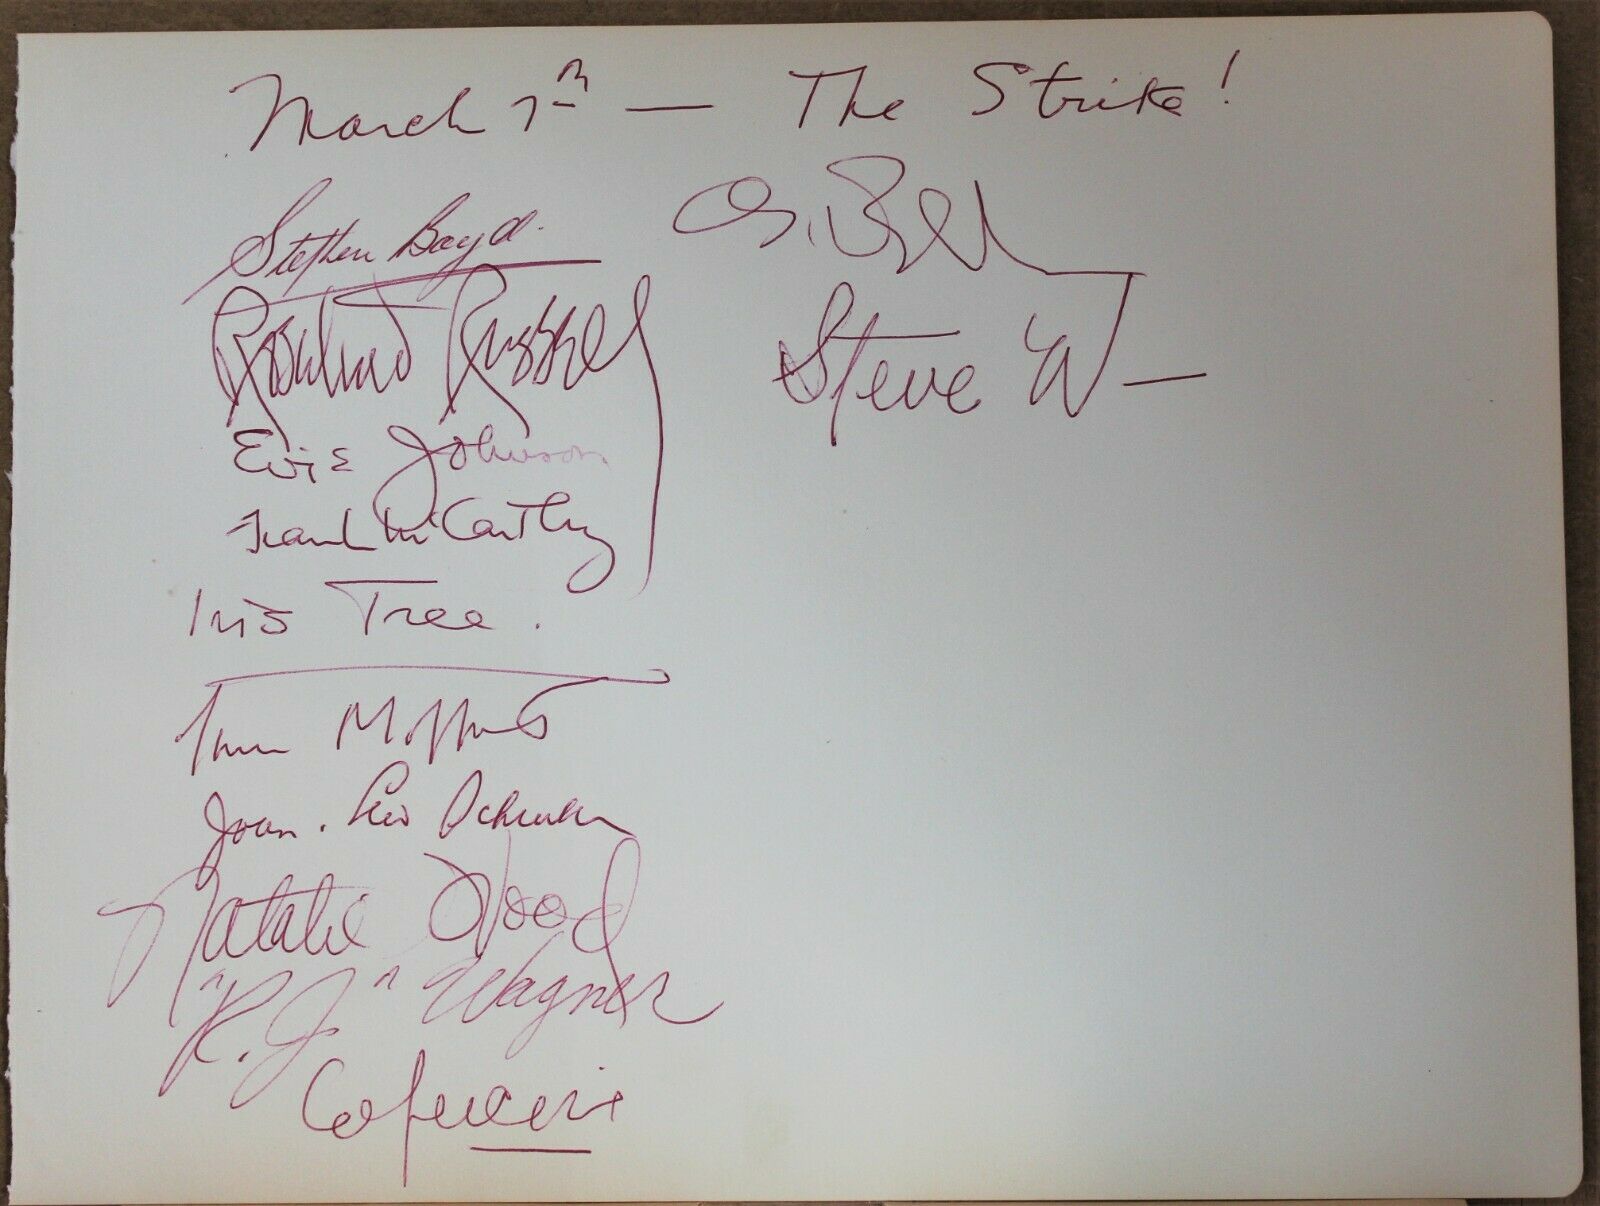 March 7th — The Strike!
Stephen Boyd.
Rosalind Russell
Evie Johnson
Frank McCarthy
Iris Tree.
Moffat
Joan.
Natalie Wood
"R.J" Wagner
Capucine
Steve W—